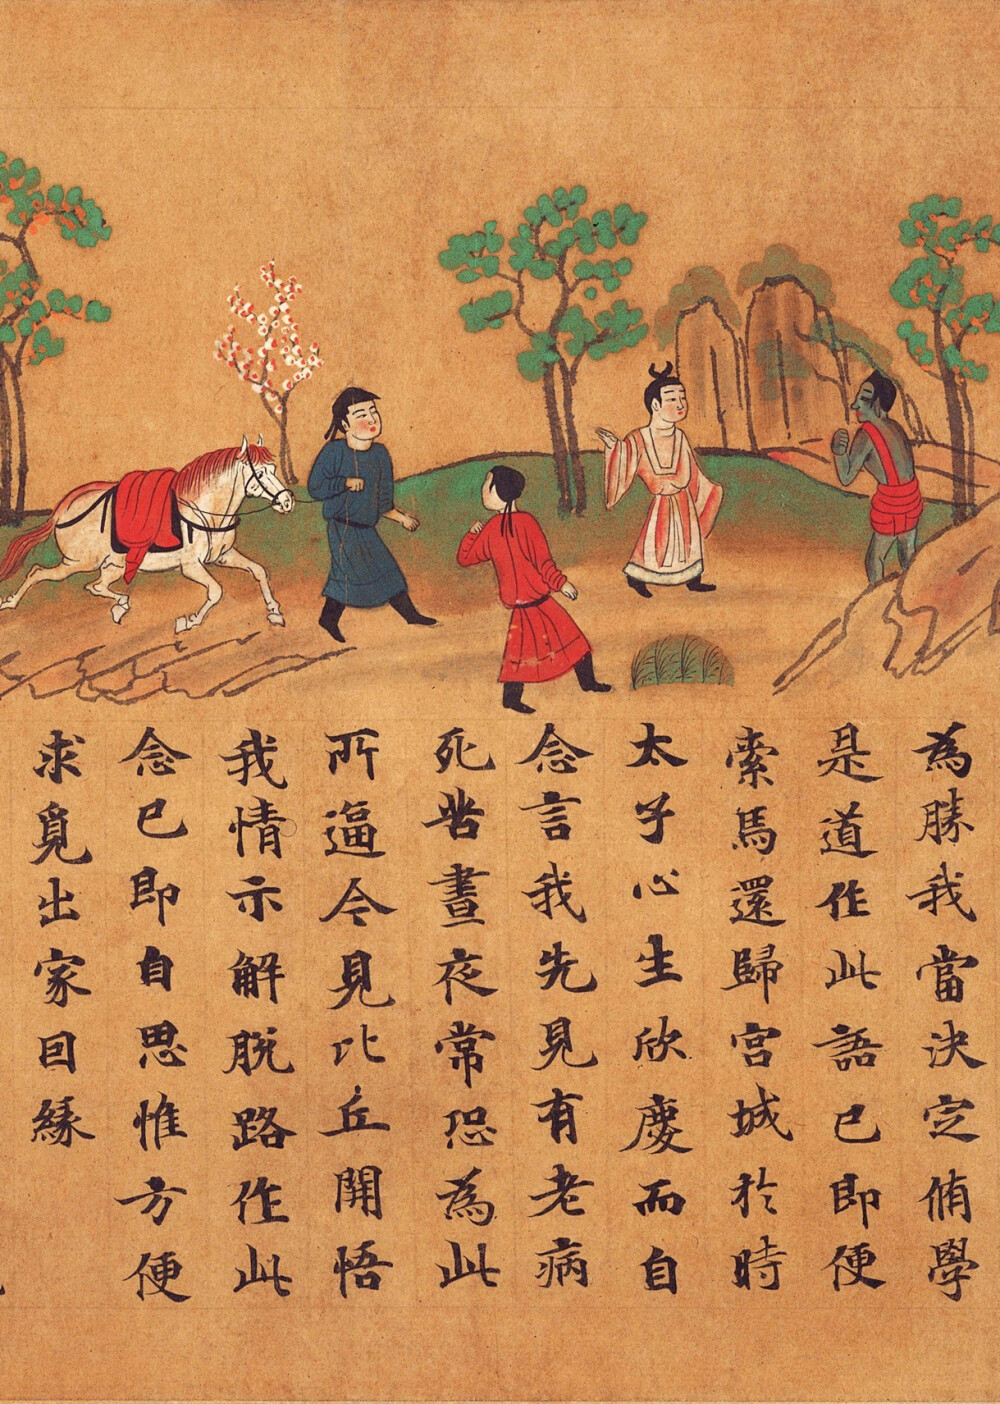 為勝我當決定脩學
是道作此語已即便
索馬還歸宮城於時
太子心生欣慶而自
念言我先見有老病
死苦晝夜常恐為此
所逼今見比丘開悟
我情示解脫路作此
念已即自思惟方便
求覓出家因緣